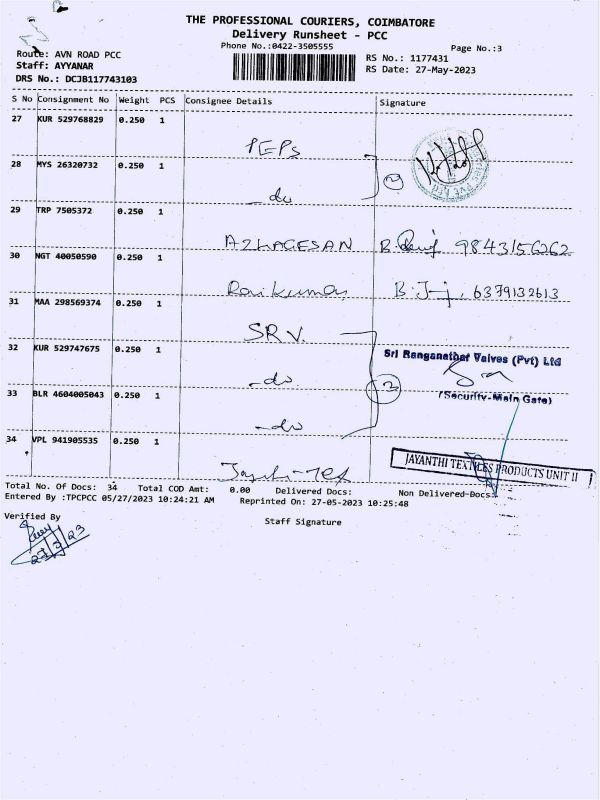 THE PROFESSIONAL COURIERS, COIMBATORE
Delivery Runsheet - PCC
Phone No.:0422-3505555
Page No.:3
Route: AVN ROAD PCC
RS No.: 1177431
Staff: AYYANAR
RS Date: 27-May-2023
DRS No.: DCJB117743103
S No Consignment No Weight PCS Consignee Details Signature
27 KUR 529768829 0.250 1
PEPs
28 MYS 26320732 0.250 1
-do
29 TRP 7505372 0.250 1
AZHAGESAN B. 9843156262
30 NGT 40050590 0.250 1
Ravikumar B. 6379132613
31 MAA 298569374 0.250 1
SRV
32 KUR 529747675 0.250 1
Sri Ranganathar Valves (Pvt) Ltd
-do
3
(Security-Main Gate)
33 BLR 4604005043 0.250 1
-do
34 VPL 941905535 0.250 1
JAYANTHI TEXTILES PRODUCTS UNIT II
Total No. Of Docs: 34 Total COD Amt: 0.00 Delivered Docs: Non Delivered Docs:
Entered By :TPCPCC 05/27/2023 10:24:21 AM Reprinted On: 27-05-2023 10:25:48
Verified By
Staff Signature